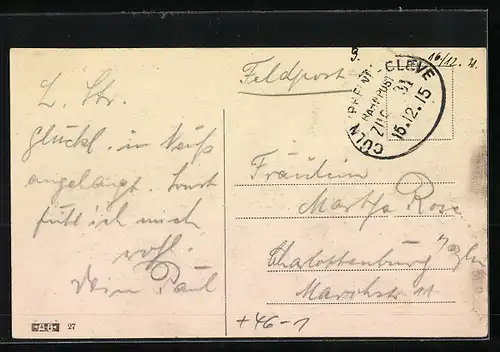 9.
16/12. 31.
Feldpost
CÖLN CLEVE
BAHNPOST
ZUG 31
16.12.15
L. Str.
Glückl. in Neuß
angelangt. Sonst
fühl ich mich
wohl.
Dein Paul
Fräulein
Martha Rose
Charlottenburg
Marchstr. 11
+46-1
A.G. 27